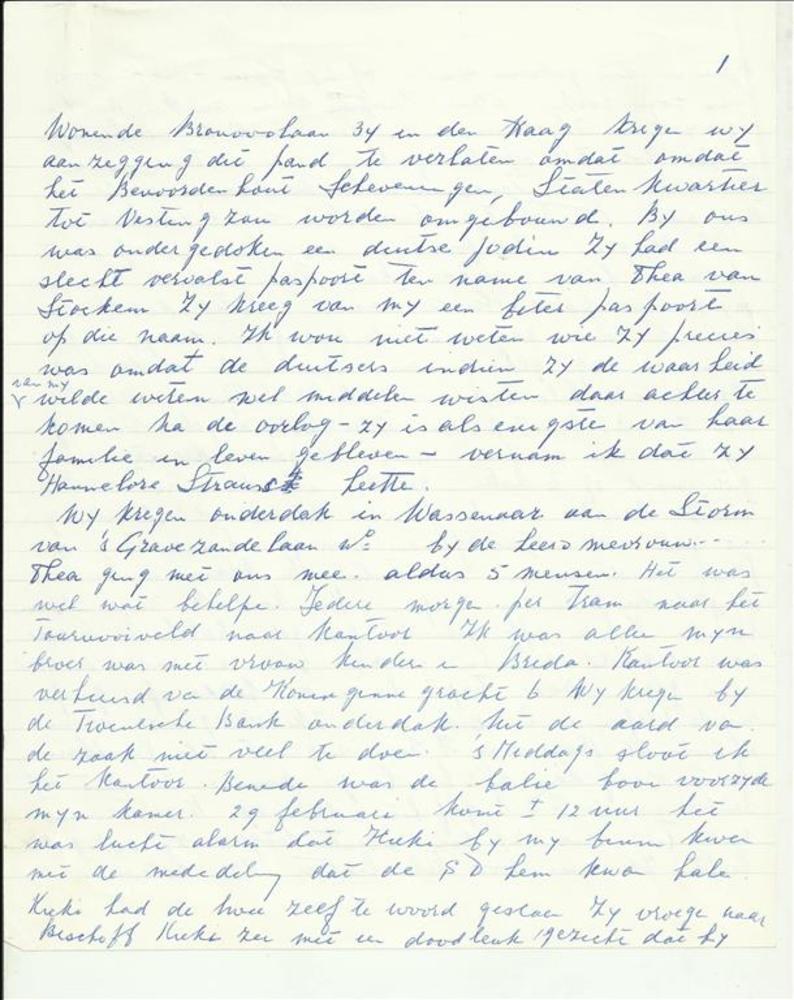 1
Wonende Bronovolaan 34 in den Haag kregen wy
aanzegging dit pand te verlaten omdat omdat
het Benoordenhout Scheveningen, Statenkwartier
tot Vesting zou worden omgebouwd. By ons
was ondergedoken een duitse jodin Zy had een
slecht vervalst paspoort ten name van Thea van
Stockem Zy kreeg van my een beter paspoort
op die naam. Ik wou niet weten wie Zy precies
was omdat de duitsers indien Zy de waarheid
van my
wilde weten wel middelen wisten daar achter te
komen Na de oorlog - zy is als enigste van haar
familie in leven gebleven - vernam ik dat zy
Hannelore Strauss heette.
Wy kregen onderdak in Wassenaar aan de Storm
van 's Gravezandelaan no by de heer mevrouw...
Thea ging met ons mee. aldus 5 mensen. Het was
wel wat behelpe. Iedere morgen per tram naar het
Tournooiveld naar kantoor Ik was alleen myn
broer was met vrouw kinderen in Breda. Kantoor was
verhuisd van de Koninginne gracht 6 Wy kregen by
de Twentsche Bank onderdak. Uit de aard van
de zaak niet veel te doen. 's Middags sloot ik
het kantoor. Beneden was de balie boven voorzyde
myn kamer. 29 februari komt ± 12 uur het
was lucht alarm dat by my binnen kwam
met de mededeling dat de SD hem kwam halen
had de twee zelf te woord gestaan Zy vroegen naar
Bischoff zei met een doodleuk gezicht dat hy